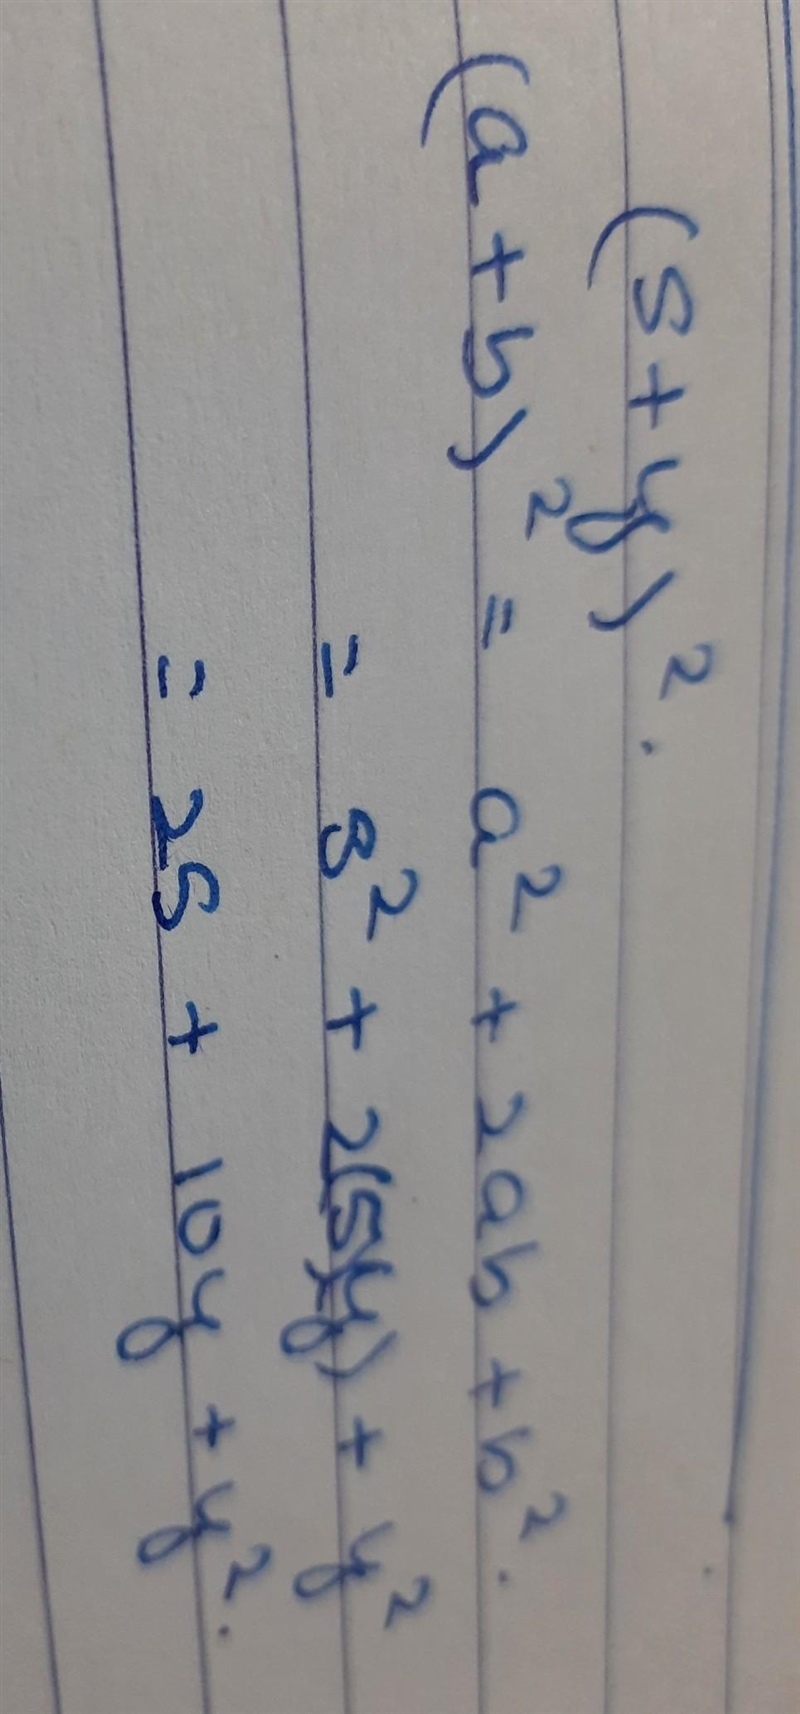 (5+y)².
(a+b)² = a² + 2ab + b².
= 5² + 2(5)(y) + y²
= 25 + 10y + y².